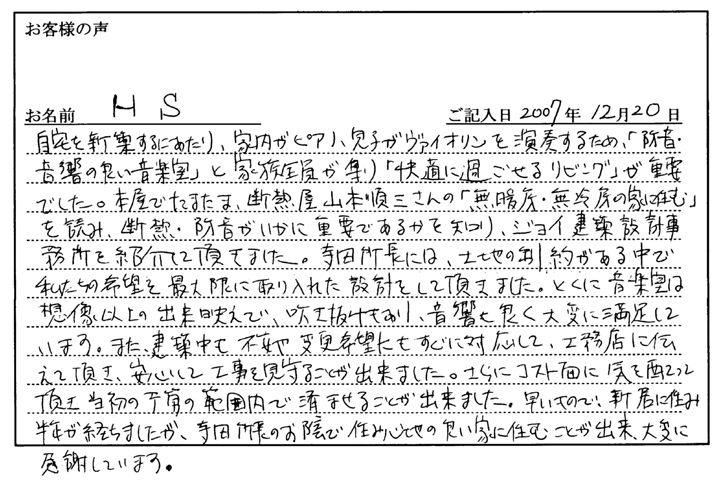 お客様の声
お名前 H S ご記入日 2007年 12月20日
自宅を新築するにあたり、家内がピアノ、息子がヴァイオリンを演奏するため、「防音・
音響の良い音楽室」と家族全員が集う「快適に過ごせるリビング」が重要
でした。本屋でたまたま、断熱屋山本順三さんの「無暖房・無冷房の家に住む」
を読み、断熱・防音がいかに重要であるかを知り、ジョイ建築設計事
務所を紹介して頂きました。寺田所長には、土地の制約がある中で
私たちの希望を最大限に取り入れた設計をして頂きました。とくに音楽室は
想像以上の出来映えで、吹き抜けもあり、音響も良く大変に満足して
います。また、建築中も不安や変更希望にもすぐに対応して、工務店に伝
えて頂き、安心して工事を見守ることが出来ました。さらにコスト面に気を配って
頂き当初の予算の範囲内で済ませることが出来ました。早いもので、新居に住み
半年が経ちましたが、寺田所長のお陰で住み心地の良い家に住むことが出来、大変に
感謝しています。